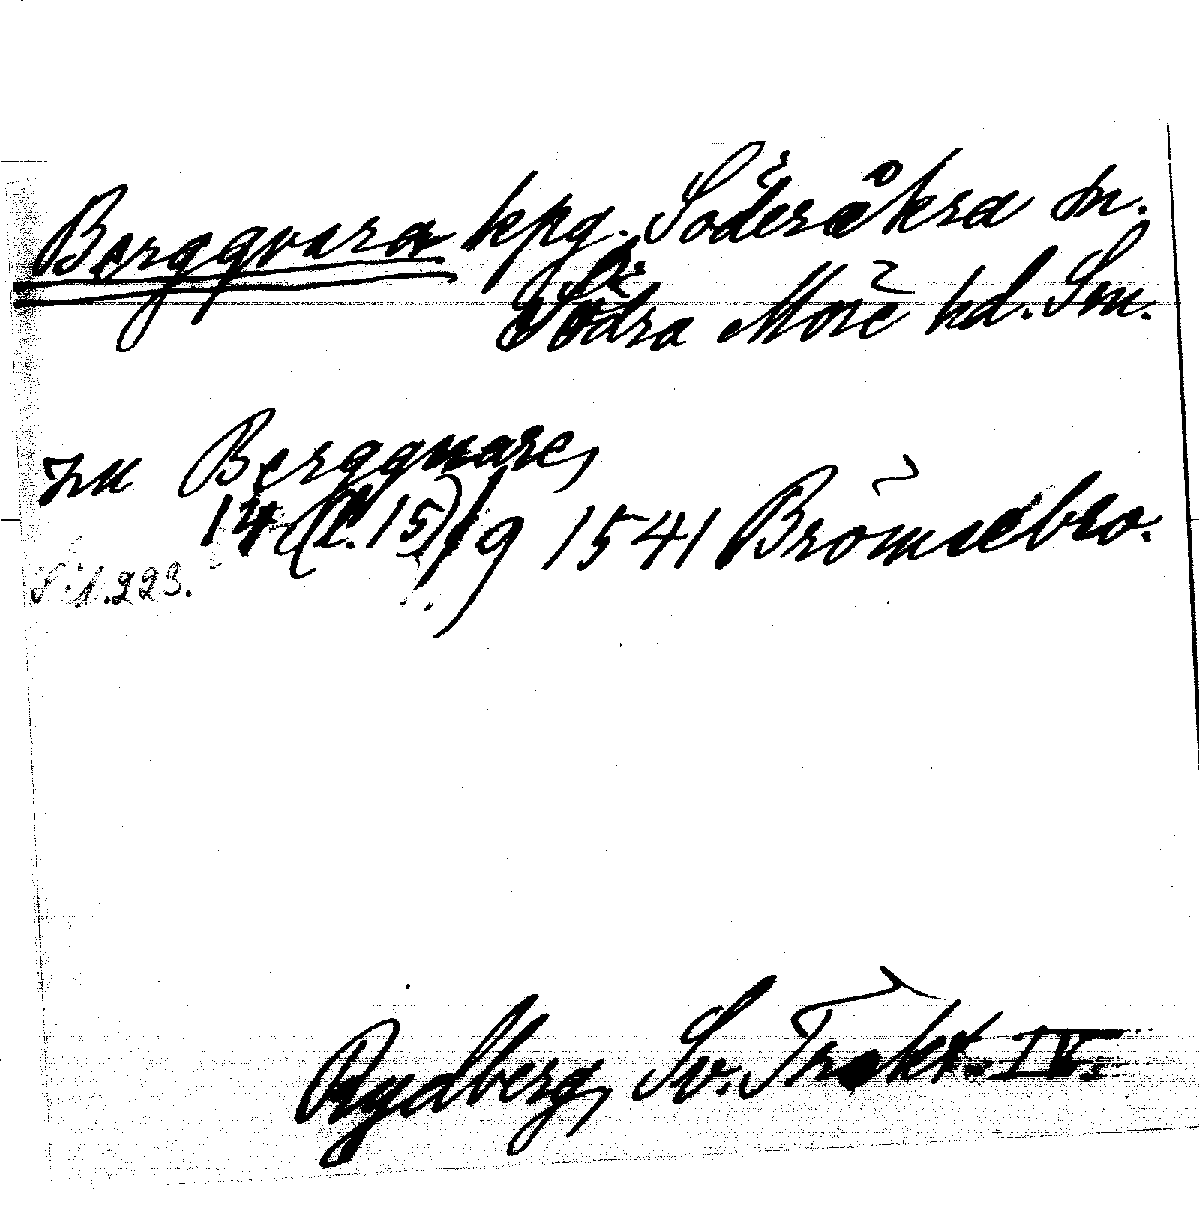 Bergqvara kpg. Söderåkra sn.
Södra Möre hd. Sm.
zu Bergquare,
14 (l. 15)/9 1541 Brömsebro.
S. 223.
Rydberg, Sv. Trakt. IV.